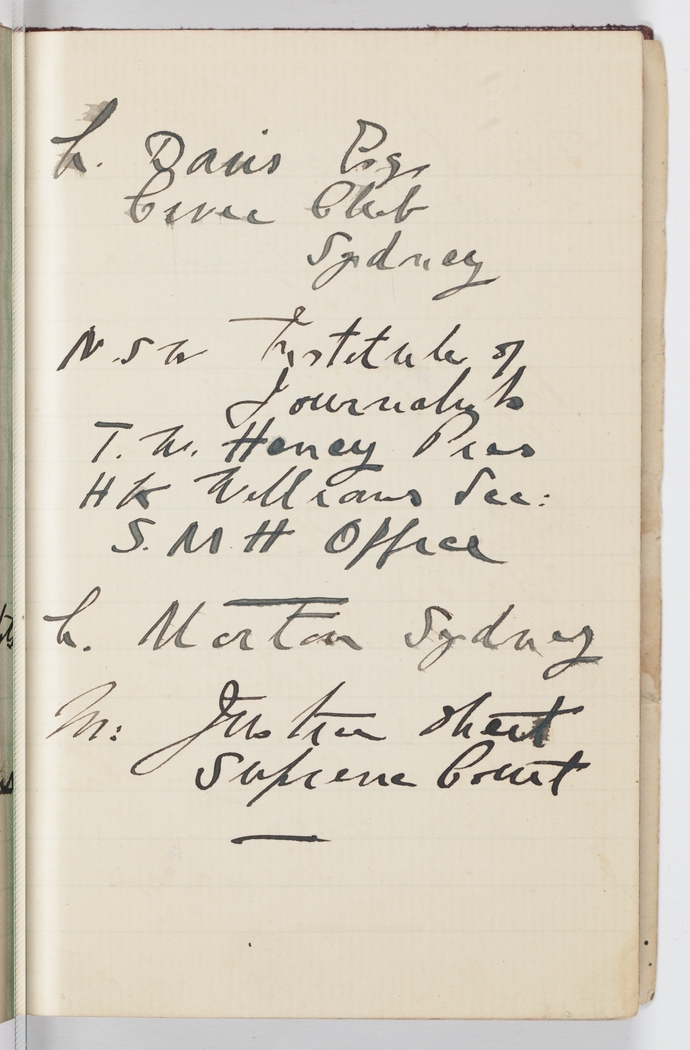 h. Davis Esq.
Civic Club
Sydney
N.S.W Institute of
Journalists
T. W. Heney Pres
H W Williams Sec:
S. M H Office
h. Morton Sydney
Justice
Supreme Court